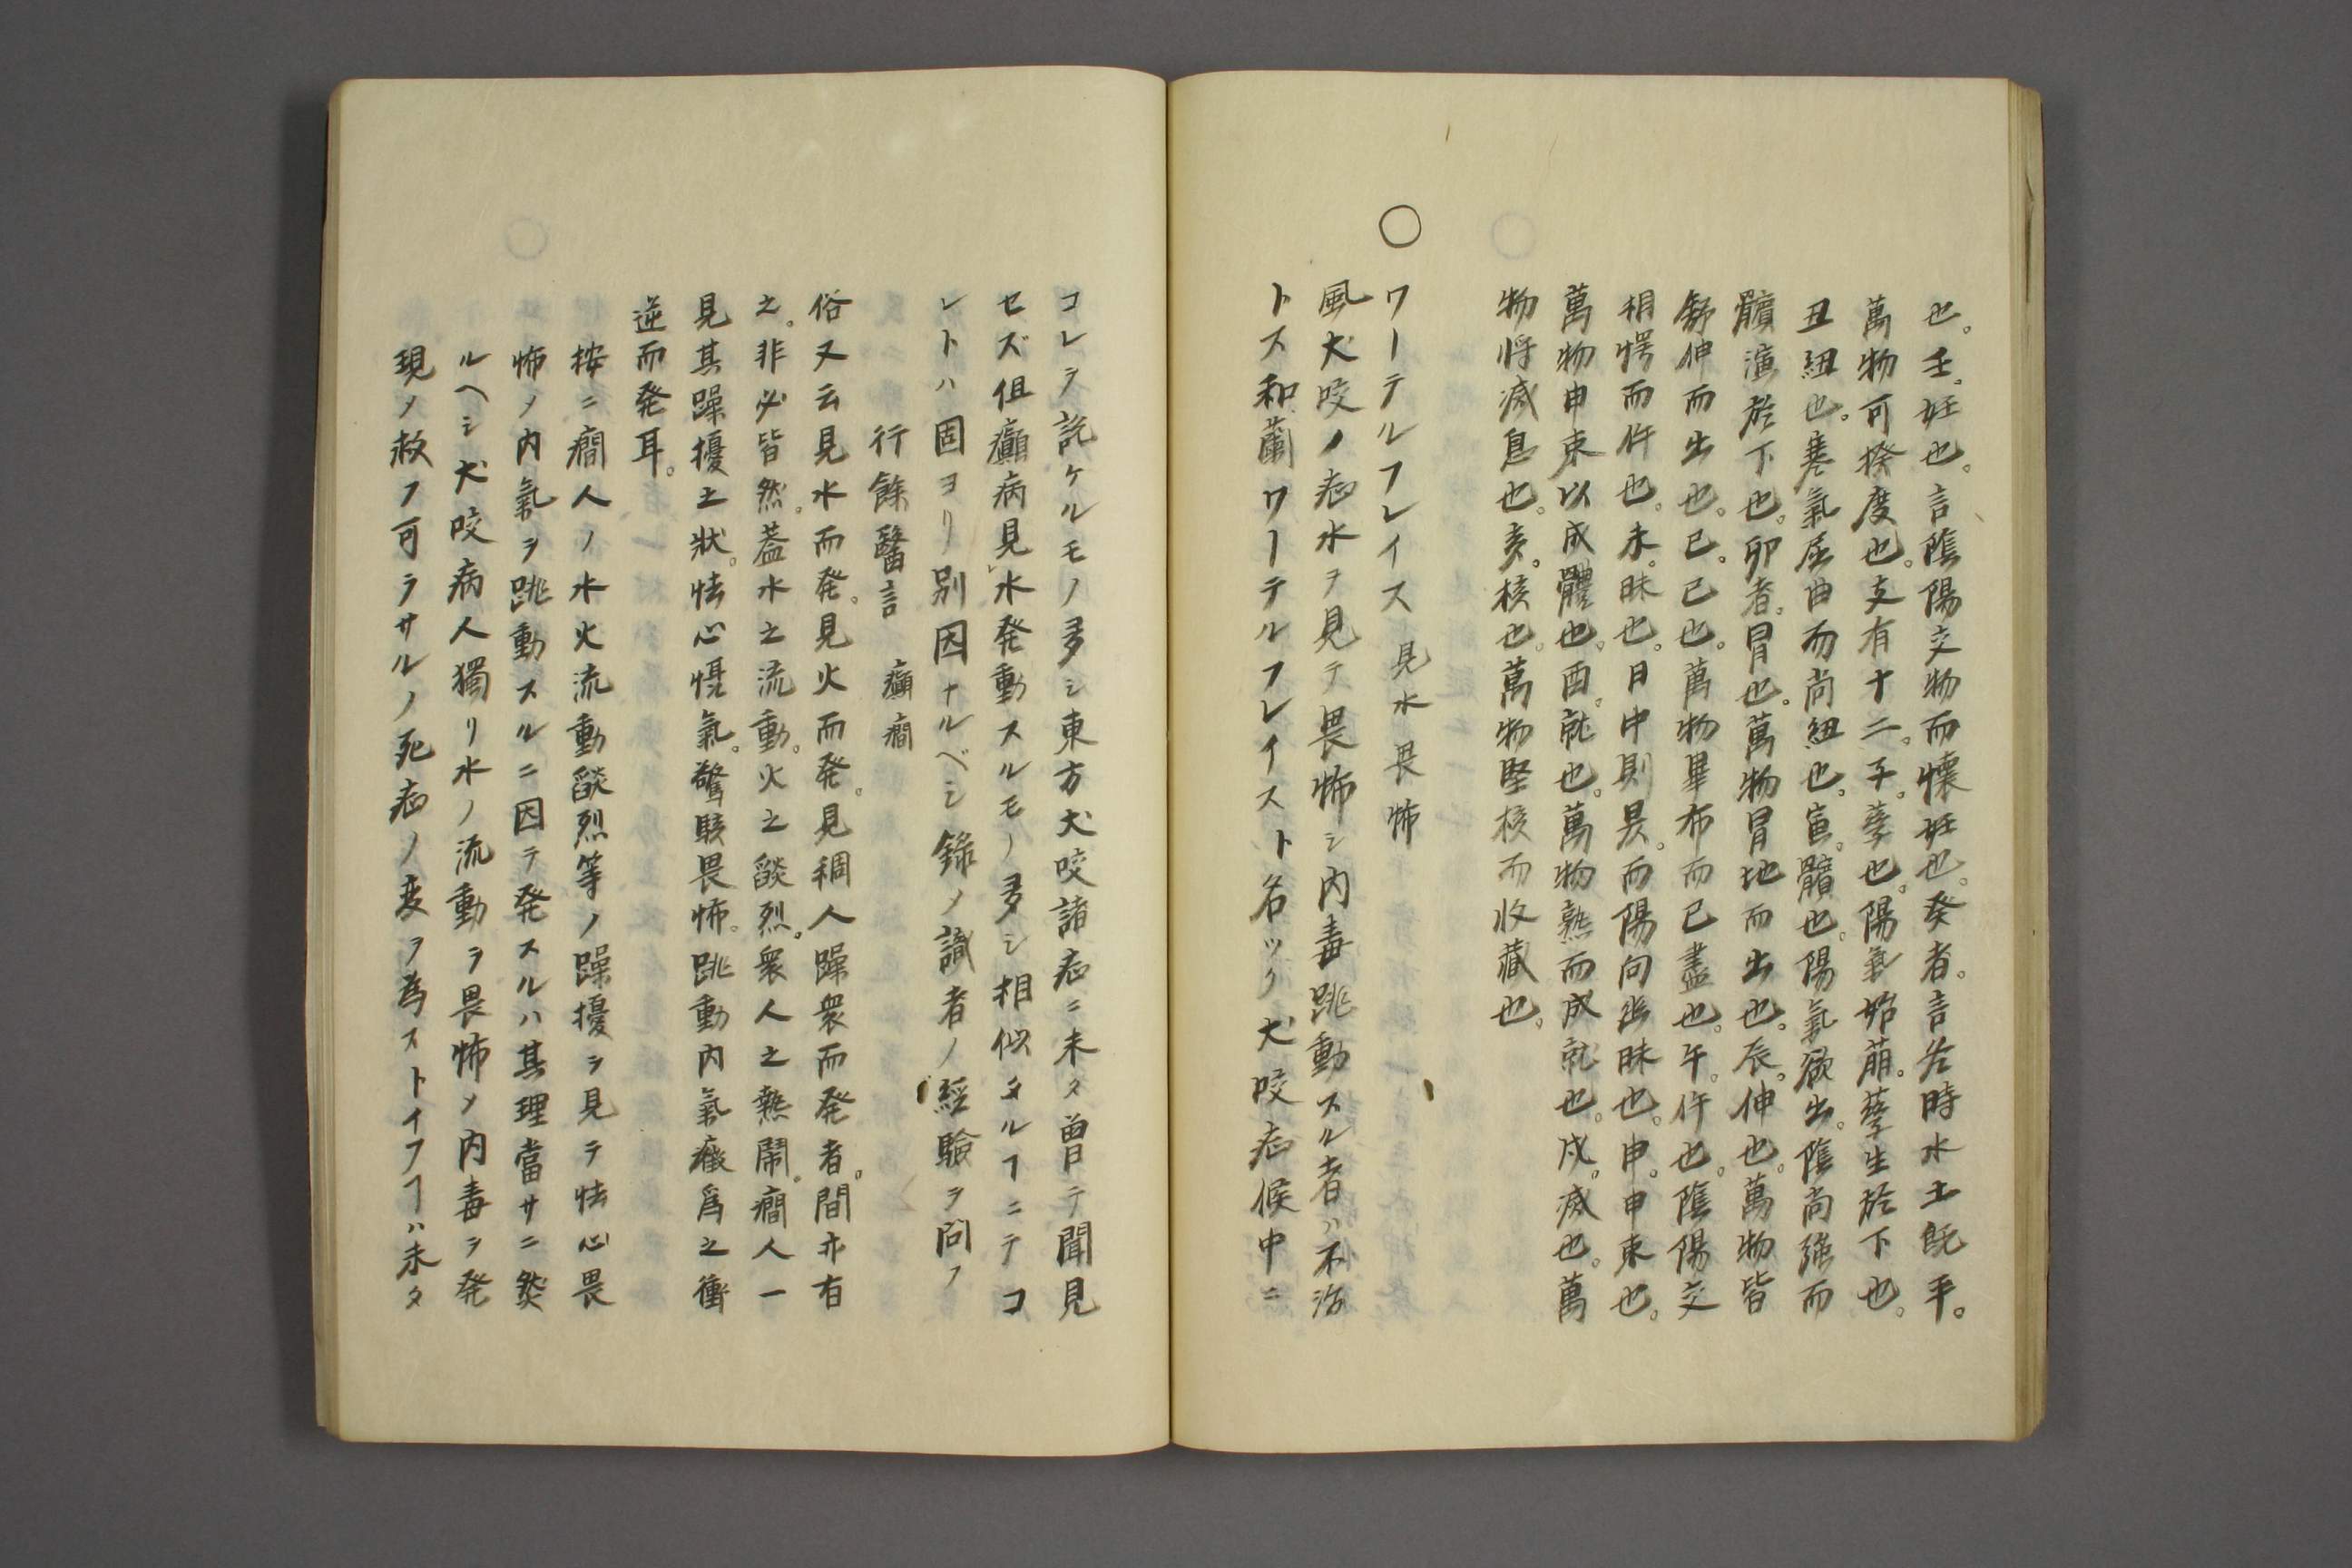 也。壬。妊也。言陰陽交物而懐妊也。癸者。言於時水土既平。
萬物可揆度也。支有十二。子。孳也。陽氣始萠。孳生於下也。
丑紐也。寒氣屈曲而尚紐也。寅。髕也。陽氣欲出。陰尚強而
髕演於下也。卯者。冒也。萬物冒地而出也。辰。伸也。萬物皆
舒伸而出也。巳。已也。萬物畢布而已盡也。午。仵也。陰陽交
相愕而仵也。未。昧也。日中則昃。而陽向幽昧也。申。申束也。
萬物申束以成體也。酉。就也。萬物熟而成就也。戌。滅也。萬
物将滅息也。亥。核也。萬物堅核而收藏也。
○ワーテルフレイス 見水畏怖
風犬咬ノ症水ヲ見テ畏怖シ内毒跳動スル者ハ不治
トス和蘭ワーテルフレイスト名ツク犬咬症候中ニ
コレヲ説ケルモノ多シ東方犬咬諸症ニ未タ曽テ聞見
セズ但癲病見水発動スルモノ多シ相似タルヿニテコ
レトハ固ヨリ別因ナルベシ錄ノ識者ノ經驗ヲ問フ
行餘醫言 癲癇
俗又云見水而発。見火而発。見稠人躁衆而発者。間亦有
之。非必皆然。蓋水之流動。火之燄烈。衆人之熱鬧。癇人一
見其躁擾之状。怯心慑氣。驚駭畏怖。跳動内氣癥爲之衝
逆而発耳。
按ニ癇人ノ水火流動燄烈等ノ躁擾ヲ見テ怯心畏
怖ノ内氣ヲ跳動スルニ因テ発スルハ其理當サニ然
ルヘシ犬咬病人獨リ水ノ流動ヲ畏怖メ内毒ヲ発
現ノ救フ可ラサルノ死症ノ変ヲ為ストイフヿハ未タ